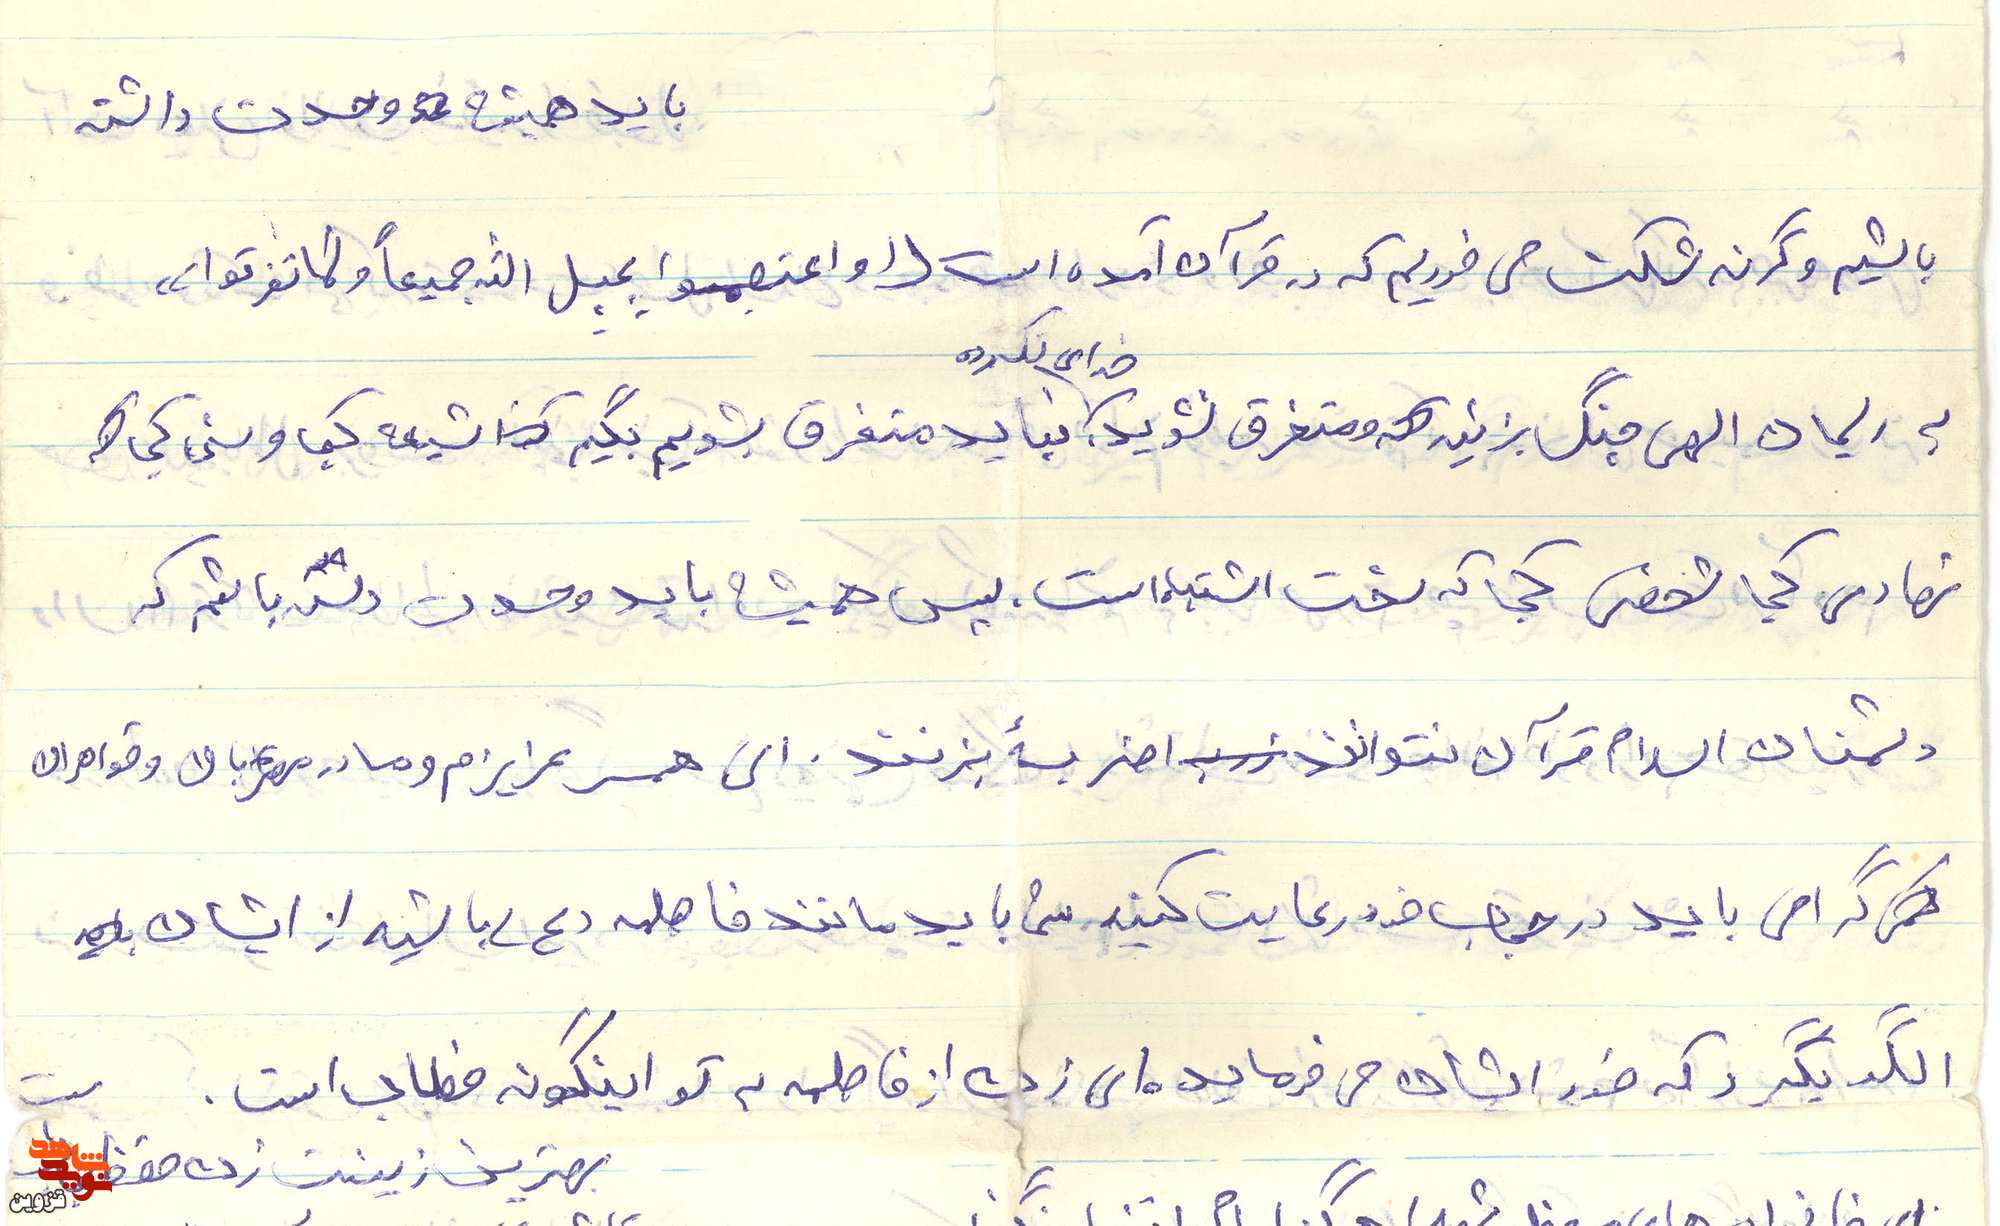 باید همیشه وحدت داشته
باشیم وگرنه شکست می خوریم که در قرآن آمده است (( واعتصموا بحبل الله جمیعاً ولا تفرقوا ))
خدای نکرده
به ریسمان الهی چنگ بزنید ومتفرق نشوید نباید متفرق بشویم بگیم شیعه کجا و سنی کجا
نصاری کجا شخصی کجا که سخت اشتباه است. پس همیشه باید وحدت داشته باشیم که
دشمنان اسلام قرآن نتوانند ضربهٔ بزنند. ای همسر عزیزم ومادر مهربان وخواهران
گرامی باید در حجاب خود رعایت کنید شما باید مانند فاطمه (ع) باشید از ایشان
الگو بگیرد که خود ایشان می فرماید ای زن از فاطمه به تو اینگونه خطاب است.
بهترین زینت زن حفظ
شاهد
نوید
قزوین